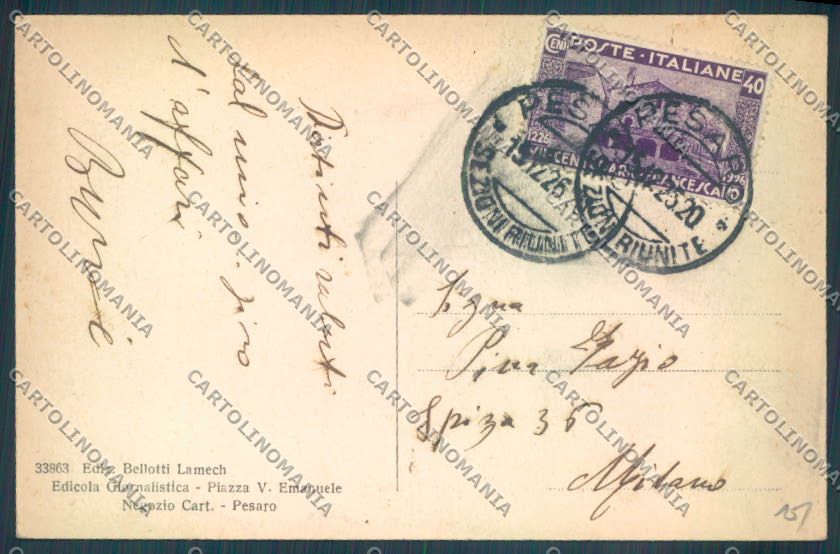 CENT POSTE · ITALIANE 40
1226 VII CENTENARIO FRANCESCANO 1926
PESARO
19.12.26
SEZIONI RIUNITE
PESARO
26.20
SEZIONI RIUNITE
Distinti saluti
dal mio giro
d'affari
Sig.na
Pina Fazio
Spiga 36
Milano
33863 Ediz. Bellotti Lamech
Edicola Giornalistica - Piazza V. Emanuele
Negozio Cart. - Pesaro
15/
CARTOLINOMANIA